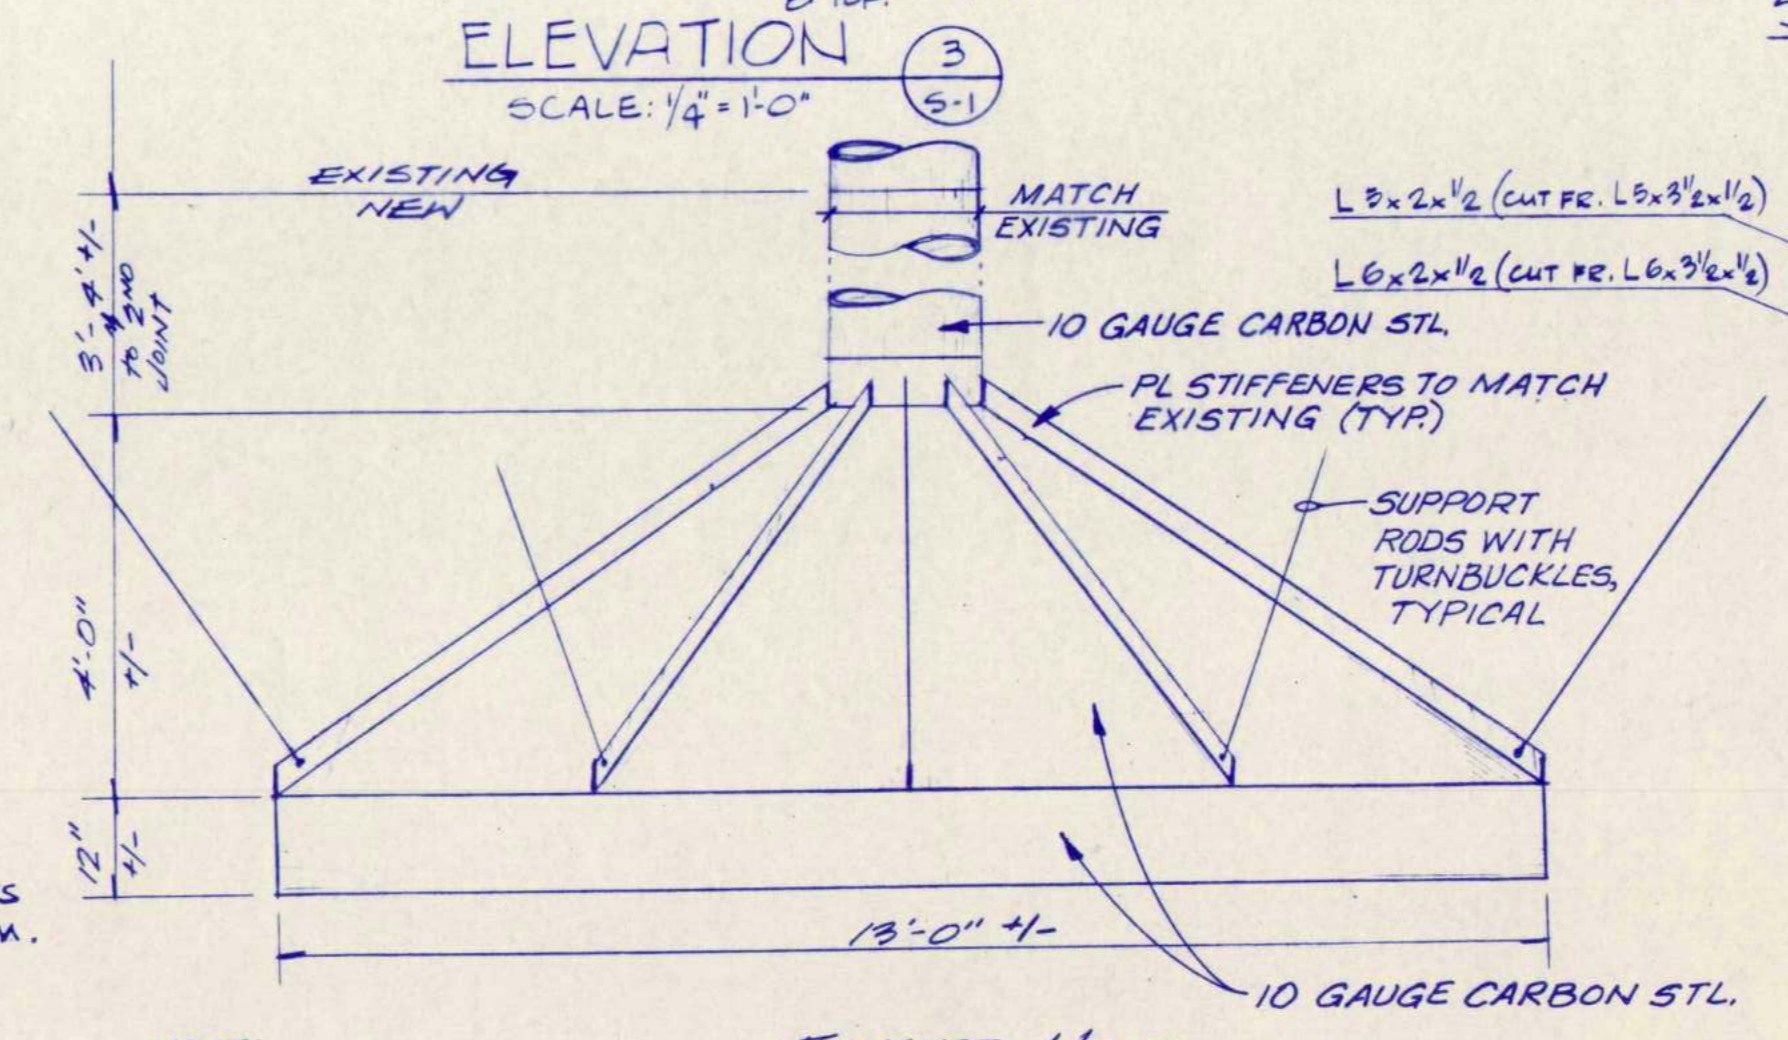 ELEVATION
3
S-1
SCALE: 1/4" = 1'-0"
EXISTING
NEW
MATCH
EXISTING
L 5x2x1/2 (CUT FR. L5x3 1/2x1/2)
L 6x2x1/2 (CUT FR. L6x3 1/2x1/2)
3'-4" +/-
TO 2ND
JOINT
10 GAUGE CARBON STL.
PL STIFFENERS TO MATCH
EXISTING (TYP.)
SUPPORT
RODS WITH
TURNBUCKLES,
TYPICAL
4'-0"
+/-
12"
+/-
13'-0" +/-
10 GAUGE CARBON STL.